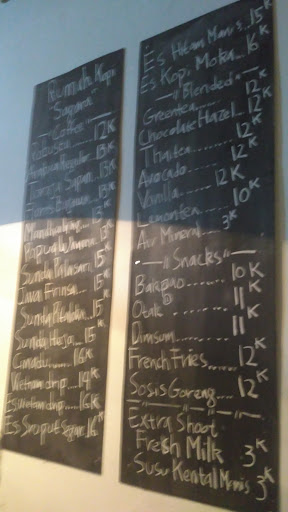 Rumah Kopi
"Coffee"
Robusta 12K
Arabica Regular 13K
13K
13K
Mandhailing 13K
Papua Wamena 13K
Sunda 15K
Java Frinsa 15K
Sunda 15
Sunda Herja 15K
16K
Vietnam drip 14K
Es vietnam drip 16K
Es Sruput Segar 16K
Es Hitam Manis 15K
Es Kopi Moka 16K
"Blended"
Greentea 12K
Chocolate Hazel 12K
Thaitea 12K
Avocado 12K
Vanilla 12K
Lemontea 10K
Air Mineral 3K
"Snacks"
Bakpao 10K
Otak² 11K
Dimsum 11K
French Fries 12K
Sosis Goreng 12K
Extra Shoot
Fresh Milk 3K
Susu Kental Manis 3K